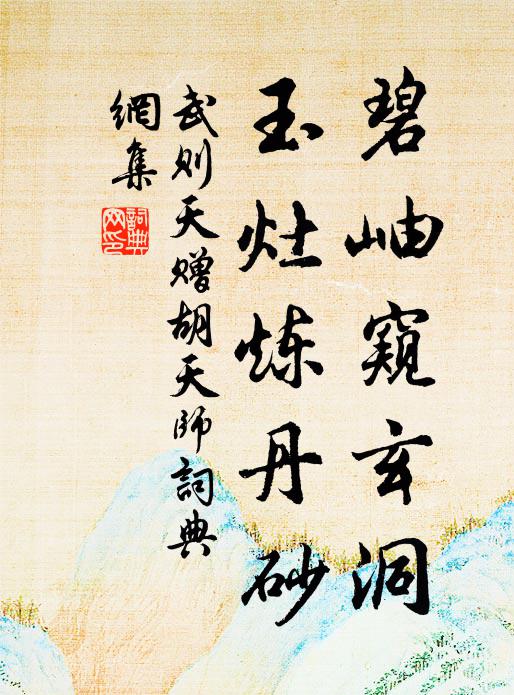 碧岫窺玄洞
玉灶炼丹砂
武则天赠胡天师詞典
網集
詞典
网印